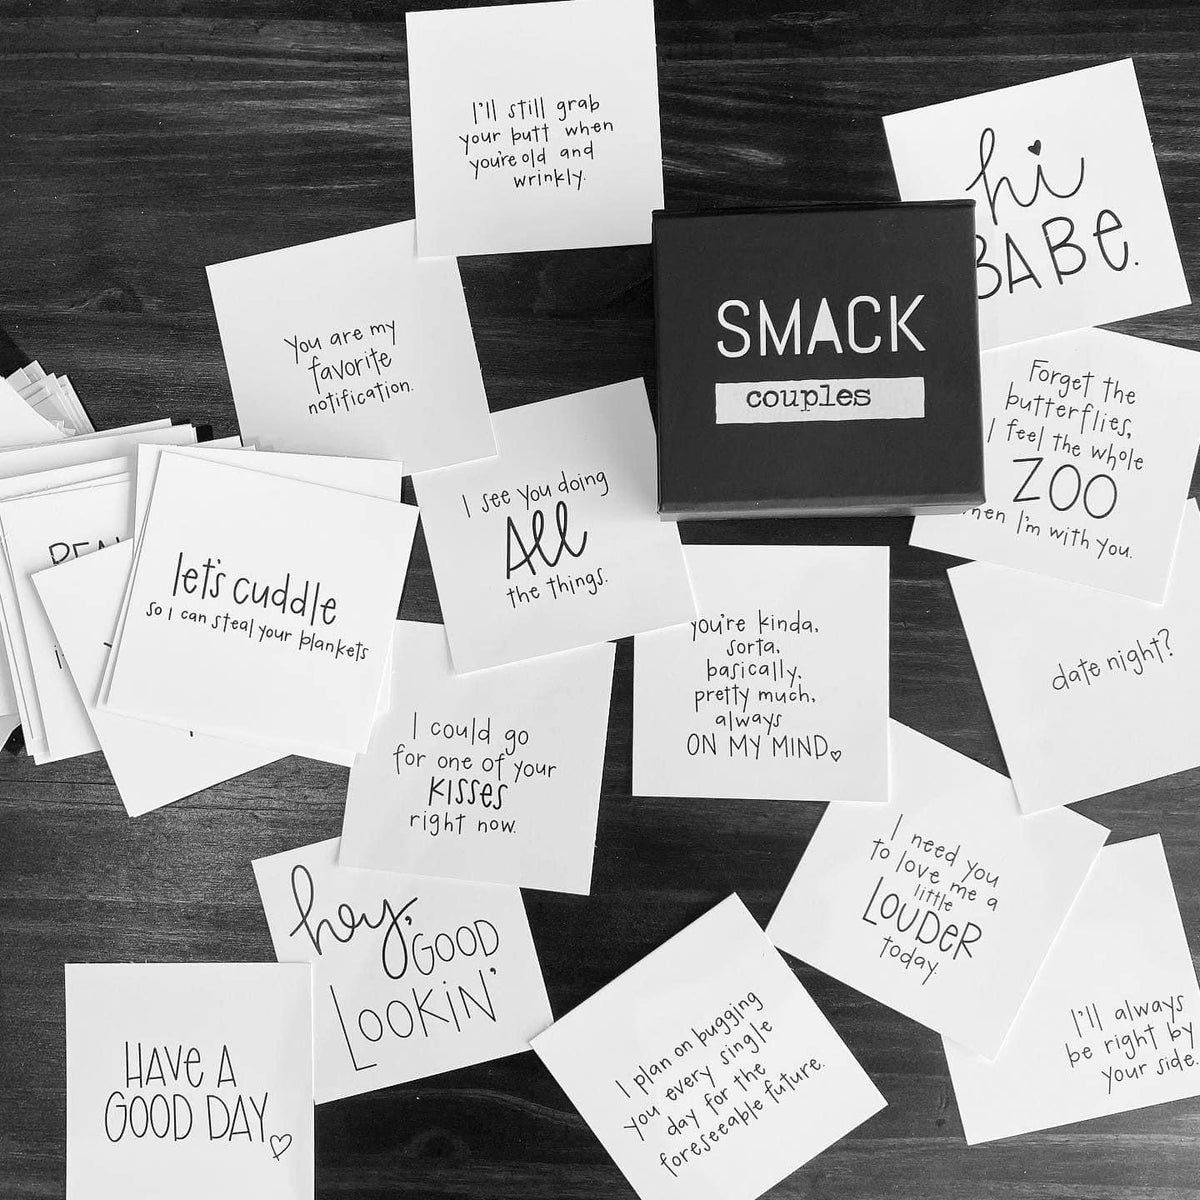 I'll still grab
your butt when
you're old and
wrinkly.
hi
BABE.
You are my
favorite
notification.
SMACK
couples
Forget the
butterflies,
I feel the whole
ZOO
when I'm with you.
I see you doing
ALL
the things.
let's cuddle
so I can steal your blankets
you're kinda,
sorta,
basically,
pretty much,
always
ON MY MIND
date night?
I could go
for one of your
KISSES
right now.
I need you
to love me a
little
LOUDER
today.
hey,
GOOD
LOOKIN'
I'll always
be right by
your side.
I plan on bugging
you every single
day for the
foreseeable future.
HAVE A
GOOD DAY